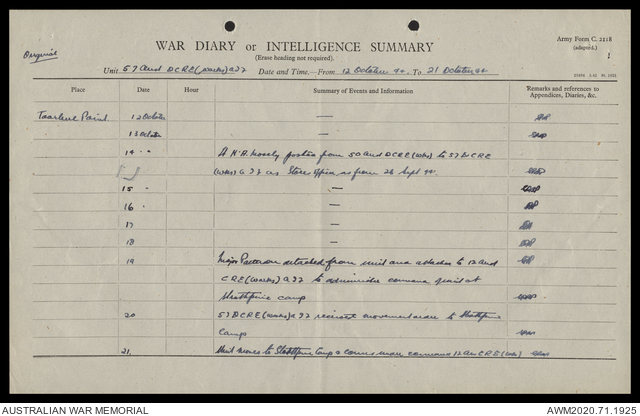 Original
WAR DIARY or INTELLIGENCE SUMMARY
(Erase heading not required).
Army Form C. 2118
(adapted.)
1
Unit 57 Aust DCRE (Works) AIF Date and Time—From 12 October 44. To 21 October 44
Place Date Hour Summary of Events and Information Remarks and references to
Appendices, Diaries, &c.
Point 12 October —
13 October —
14 " " Lt H.A. Mosely posted from 50 Aust DCRE (Wks) to 57 DCRE
(Wks) AIF as Stores Officer as from 26 Sept 44.
15 " —
16 " —
17 —
18 —
19 Major detached from unit and attached to 12 Aust
CRE (Works) AIF to administer command at
Strathpine Camp
20 57 DCRE (Works) AIF movement order to Strathpine
Camp
21. Unit moves to Strathpine Camp & comes under command 12 Aust CRE (Wks)
AUSTRALIAN WAR MEMORIAL
AWM2020.71.1925